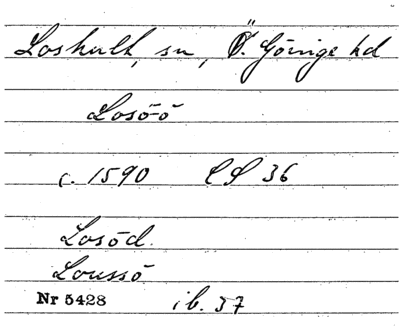 Loshult, sn, Ö. Göinge hd
Losöö
c. 1590 LS 36
Losöd.
Loussö
Nr 5428 ib. 37